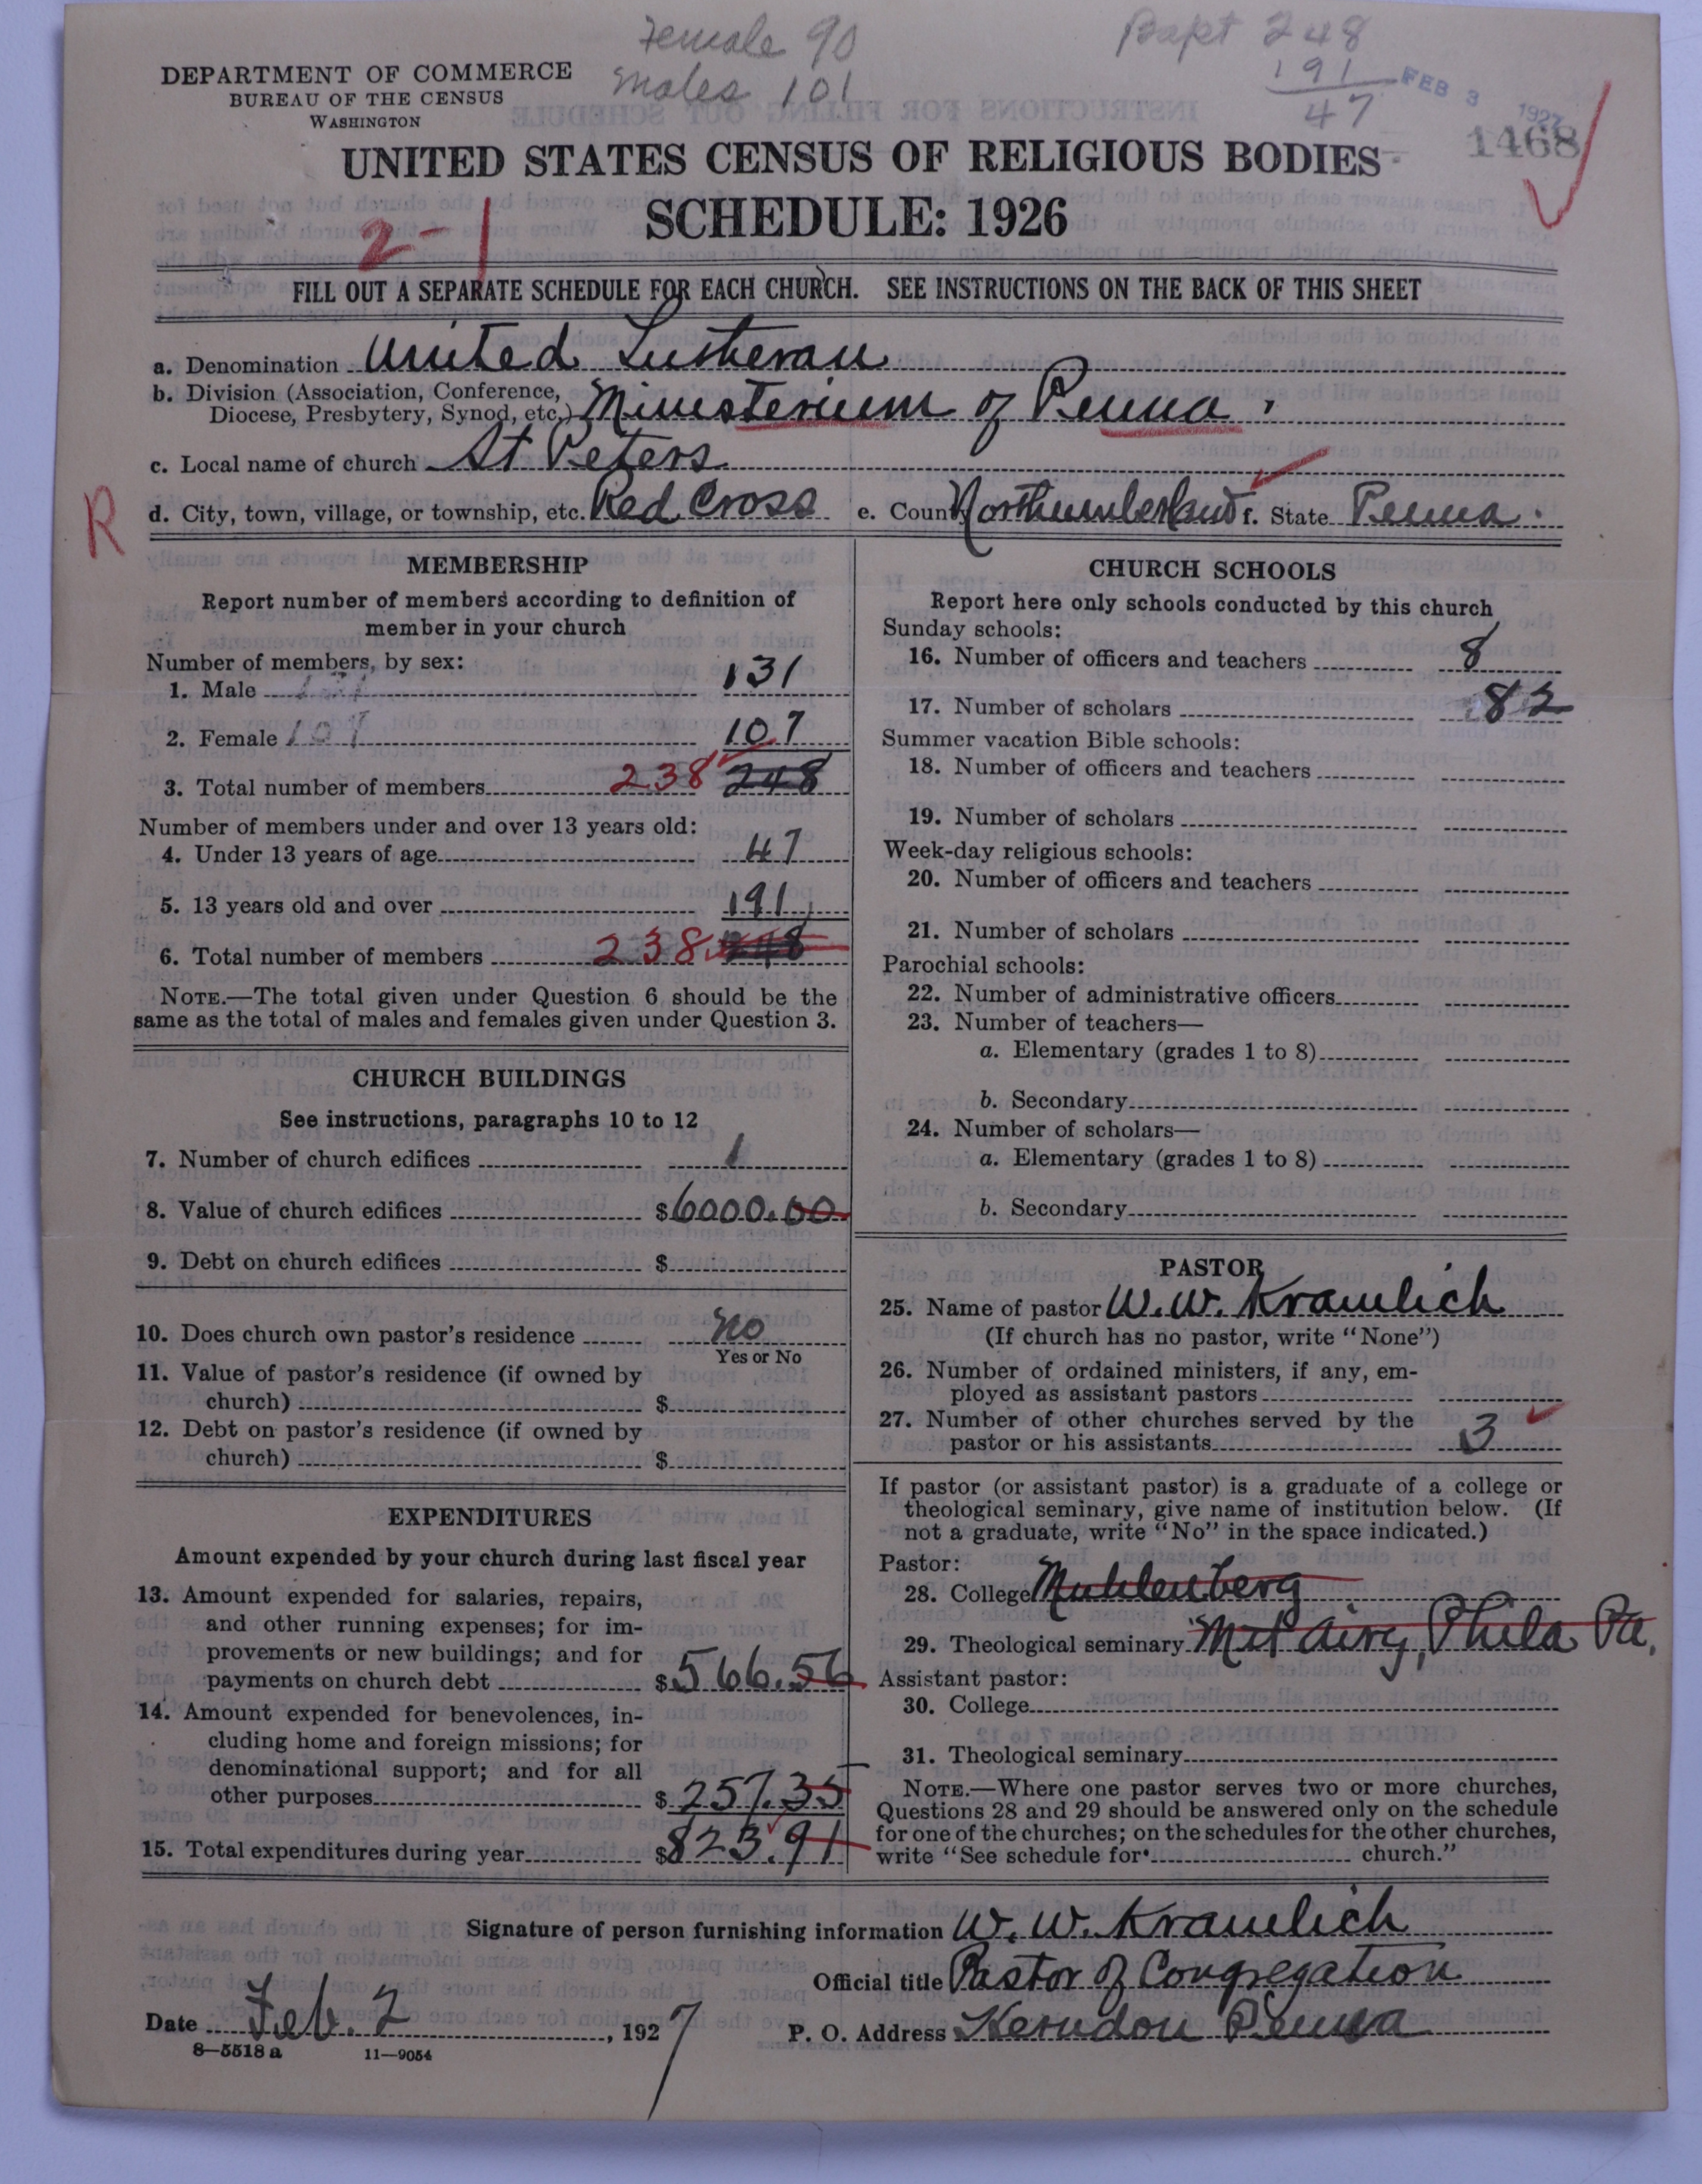 Female 90
Males 101
Bapt 248
191
47
FEB 3 1927
1468
DEPARTMENT OF COMMERCE
BUREAU OF THE CENSUS
WASHINGTON
UNITED STATES CENSUS OF RELIGIOUS BODIES
SCHEDULE: 1926
2-1
FILL OUT A SEPARATE SCHEDULE FOR EACH CHURCH. SEE INSTRUCTIONS ON THE BACK OF THIS SHEET
a. Denomination United Lutheran
b. Division (Association, Conference,
Diocese, Presbytery, Synod, etc.) Ministerium of Penna.
c. Local name of church St Peters
R
d. City, town, village, or township, etc. Red Cross e. County Northumberland f. State Penna.
MEMBERSHIP
Report number of members according to definition of
member in your church
Number of members, by sex:
1. Male 131
2. Female 107 107
3. Total number of members 238 248
Number of members under and over 13 years old:
4. Under 13 years of age 47
5. 13 years old and over 191
6. Total number of members 238 248
NOTE.—The total given under Question 6 should be the
same as the total of males and females given under Question 3.
CHURCH BUILDINGS
See instructions, paragraphs 10 to 12
7. Number of church edifices 1
8. Value of church edifices $6000.00
9. Debt on church edifices $
10. Does church own pastor's residence No
Yes or No
11. Value of pastor's residence (if owned by
church) $
12. Debt on pastor's residence (if owned by
church) $
EXPENDITURES
Amount expended by your church during last fiscal year
13. Amount expended for salaries, repairs,
and other running expenses; for im-
provements or new buildings; and for
payments on church debt $566.56
14. Amount expended for benevolences, in-
cluding home and foreign missions; for
denominational support; and for all
other purposes $257.35
15. Total expenditures during year $823.91
CHURCH SCHOOLS
Report here only schools conducted by this church
Sunday schools:
16. Number of officers and teachers 8
17. Number of scholars 82
Summer vacation Bible schools:
18. Number of officers and teachers
19. Number of scholars
Week-day religious schools:
20. Number of officers and teachers
21. Number of scholars
Parochial schools:
22. Number of administrative officers
23. Number of teachers—
a. Elementary (grades 1 to 8)
b. Secondary
24. Number of scholars—
a. Elementary (grades 1 to 8)
b. Secondary
PASTOR
25. Name of pastor W. W. Kramlich
(If church has no pastor, write "None")
26. Number of ordained ministers, if any, em-
ployed as assistant pastors
27. Number of other churches served by the
pastor or his assistants 3
If pastor (or assistant pastor) is a graduate of a college or
theological seminary, give name of institution below. (If
not a graduate, write "No" in the space indicated.)
Pastor:
28. College Muhlenberg
29. Theological seminary Mt Airy, Phila Pa.
Assistant pastor:
30. College
31. Theological seminary
NOTE.—Where one pastor serves two or more churches,
Questions 28 and 29 should be answered only on the schedule
for one of the churches; on the schedules for the other churches,
write "See schedule for church."
Signature of person furnishing information W. W. Kramlich
Official title Pastor of Congregation
Date Feb. 2, 1927 P. O. Address Herndon Penna
8—5518 a 11—9054